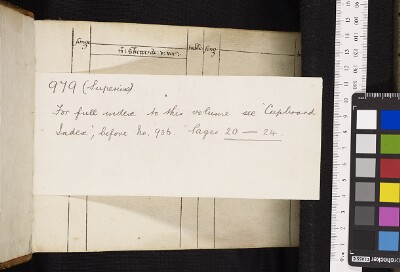 979 (Superius)
For full index to this volume see "Cupboard
Index", before No. 936. Pages 20 — 24.